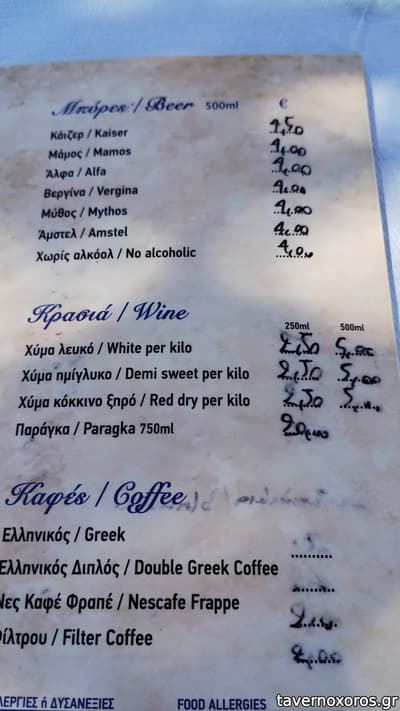 Μπύρες / Beer 500ml €
Κάιζερ / Kaiser 4,50
Μάμος / Mamos 4,00
Άλφα / Alfa 4,00
Βεργίνα / Vergina 4,00
Μύθος / Mythos 4,00
Άμστελ / Amstel 4,00
Χωρίς αλκόολ / No alcoholic 4,0
Κρασιά / Wine 250ml 500ml
Χύμα λευκό / White per kilo 2,50 5,00
Χύμα ημίγλυκο / Demi sweet per kilo 2,50 5,00
Χύμα κόκκινο ξηρό / Red dry per kilo 2,50 5,
Παράγκα / Paragka 750ml 20,00
Καφές / Coffee
Ελληνικός / Greek
Ελληνικός Διπλός / Double Greek Coffee
Νες Καφέ Φραπέ / Nescafe Frappe
Φίλτρου / Filter Coffee 2,00
ΛΕΡΓΙΕΣ ή ΔΥΣΑΝΕΞΙΕΣ FOOD ALLERGIES
tavernoxoros.gr